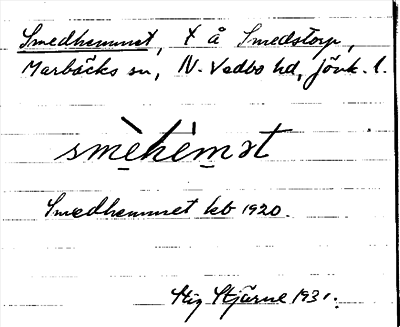 Smedhemmet, t å Smedstorp,
Marbäcks sn, N. Vedbo hd, Jönk. l.
smèhèmət
Smedhemmet kb 1920.
Stig Stjärne 1931.